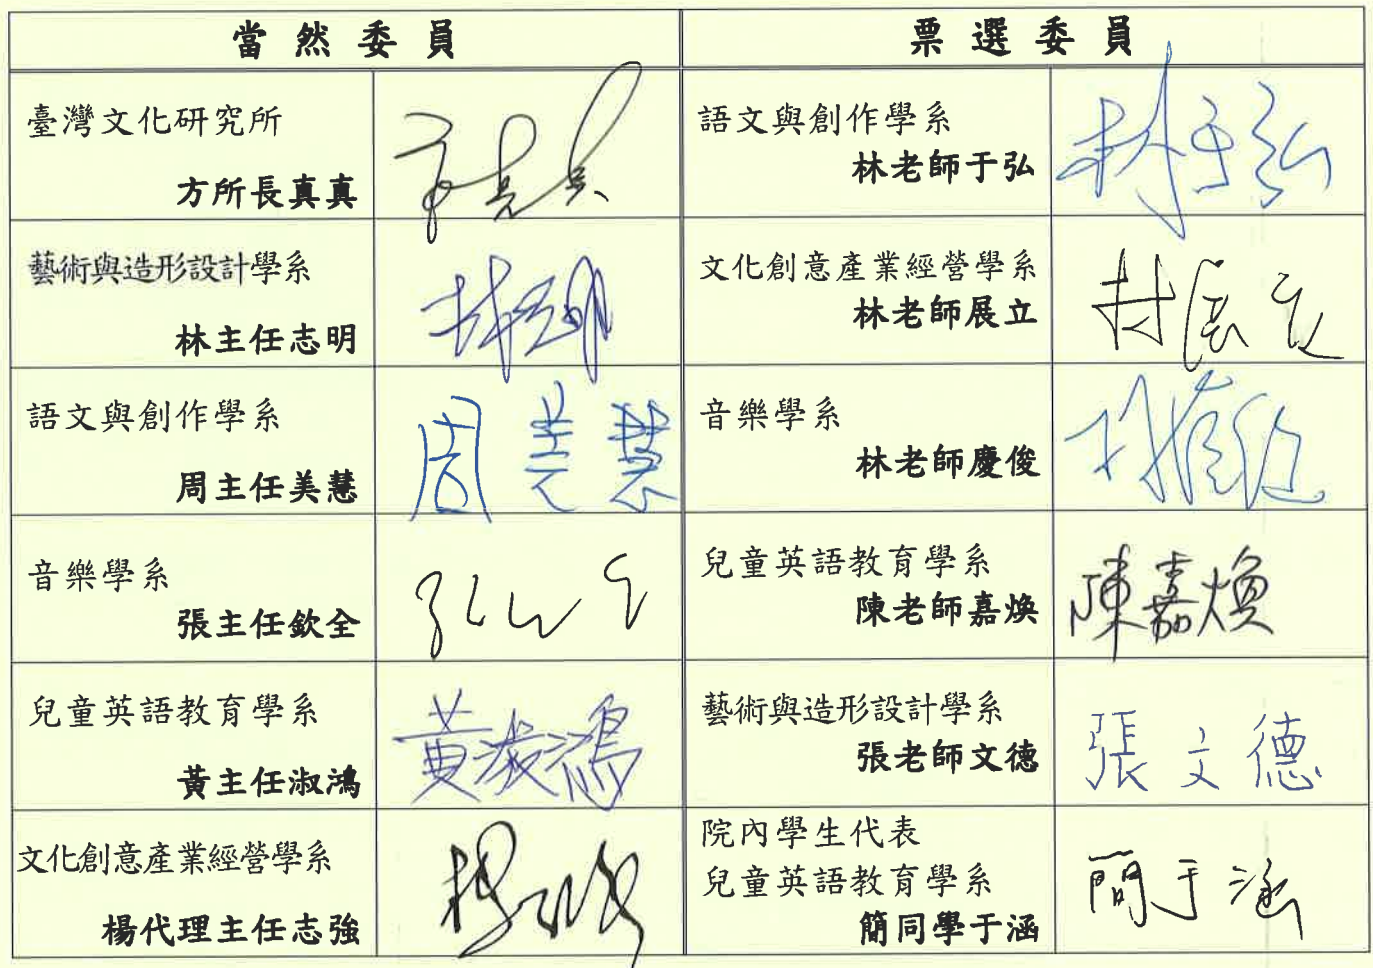 當然委員
票選委員
臺灣文化研究所
方所長真真
語文與創作學系
林老師于弘
林于弘
藝術與造形設計學系
林主任志明
林志明
文化創意產業經營學系
林老師展立
林展立
語文與創作學系
周主任美慧
周美慧
音樂學系
林老師慶俊
音樂學系
張主任欽全
兒童英語教育學系
陳老師嘉煥
陳嘉煥
兒童英語教育學系
黃主任淑鴻
黃淑鴻
藝術與造形設計學系
張老師文德
張文德
文化創意產業經營學系
楊代理主任志強
院內學生代表
兒童英語教育學系
簡同學于涵
簡于涵